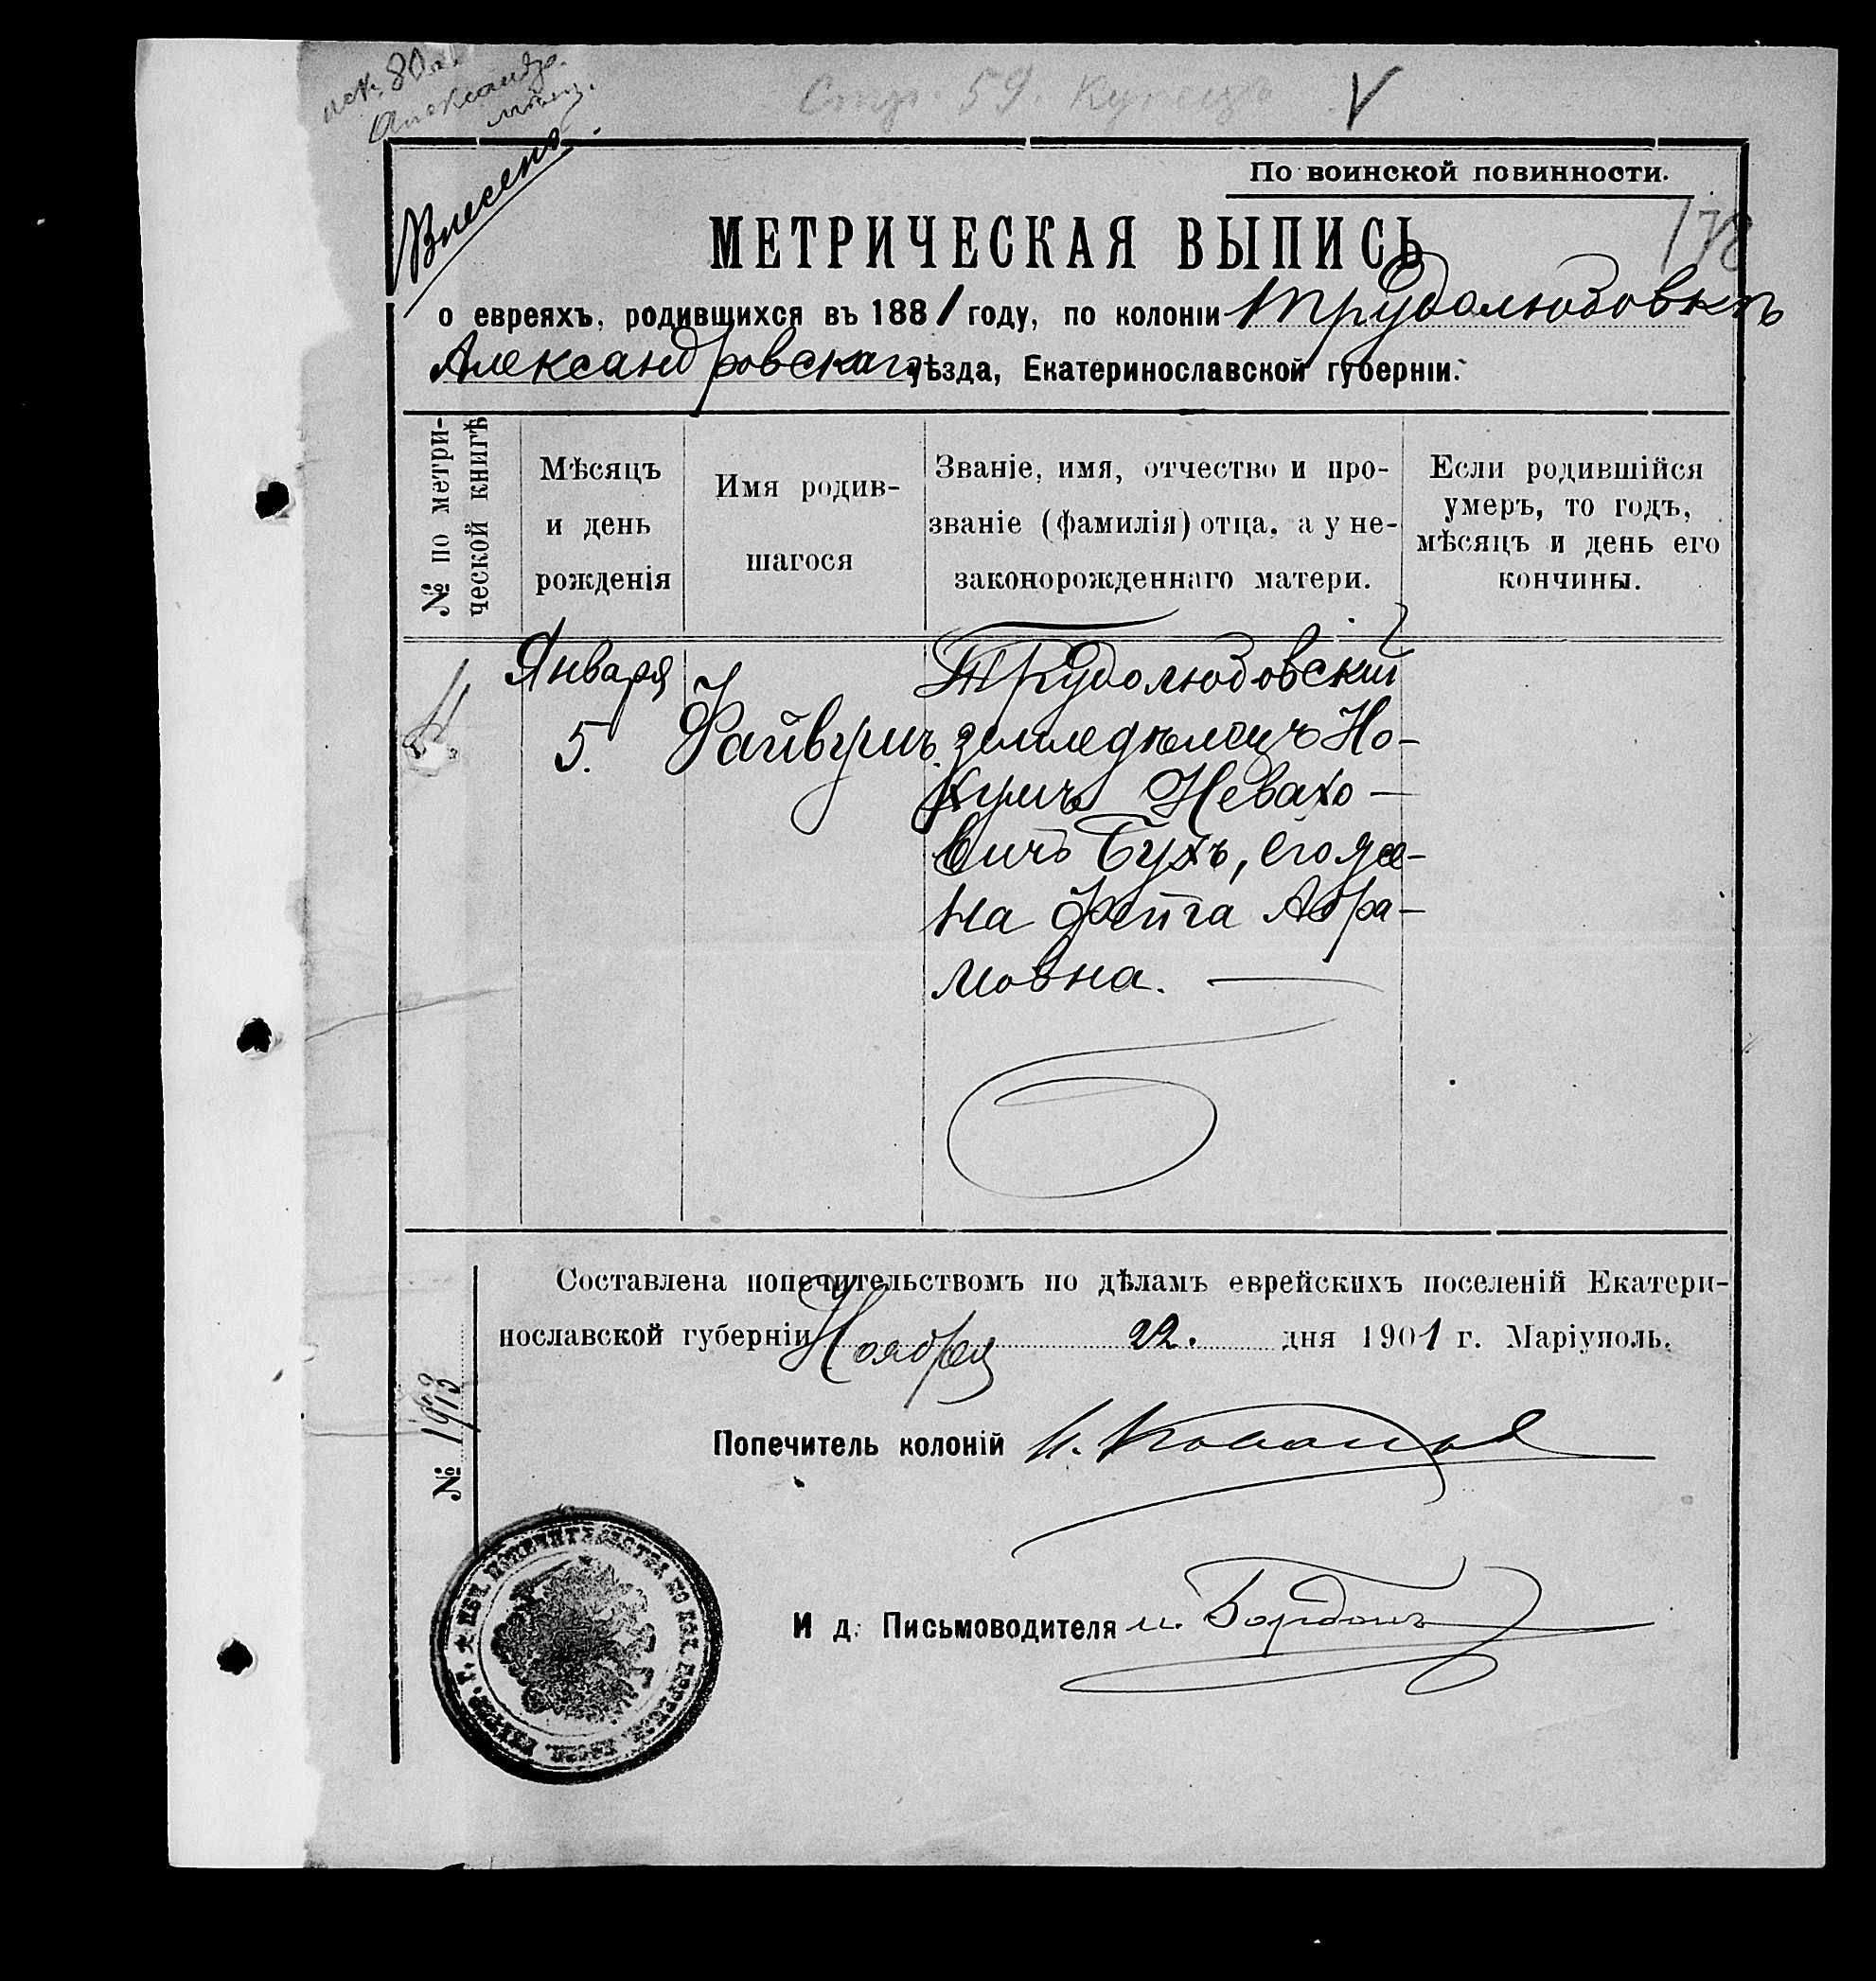 Александр.
Стр. 59. Купецъ
V
Внесенъ
По воинской повинности.
178
МЕТРИЧЕСКАЯ ВЫПИСЬ
о евреяхъ, родившихся въ 1881 году, по колоніи Трудолюбовкѣ
Александровскаго уѣзда, Екатеринославской губерніи.
№ по метри-
ческой книгѣ
Мѣсяцъ
и день
рожденія
Имя родив-
шагося
Званіе, имя, отчество и про-
званіе (фамилія) отца, а у не-
законорожденнаго матери.
Если родившійся
умеръ, то годъ,
мѣсяцъ и день его
кончины.
Января
5.
Файвушъ
Трудолюбовскій
земледѣлецъ Но-
хумъ Невахо-
вичъ Бухъ, его же-
на Фейга Абра-
мовна.
Составлена попечительствомъ по дѣламъ еврейскихъ поселеній Екатери-
нославской губерніи Ноября 22. дня 1901 г. Маріуполь.
№ 1973
Попечитель колоній
И д. Письмоводителя